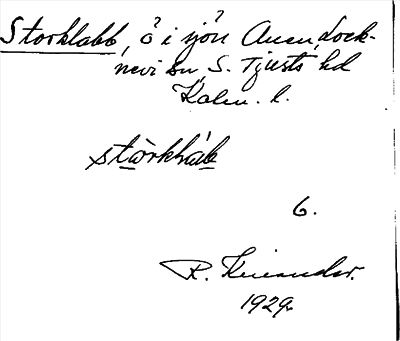 Storklabb, ö i sjön Ånen, Lock-
nevi sn, S. Tjusts hd
Kalm. l.
stòrkláb
6.
R. Kinander.
1929.